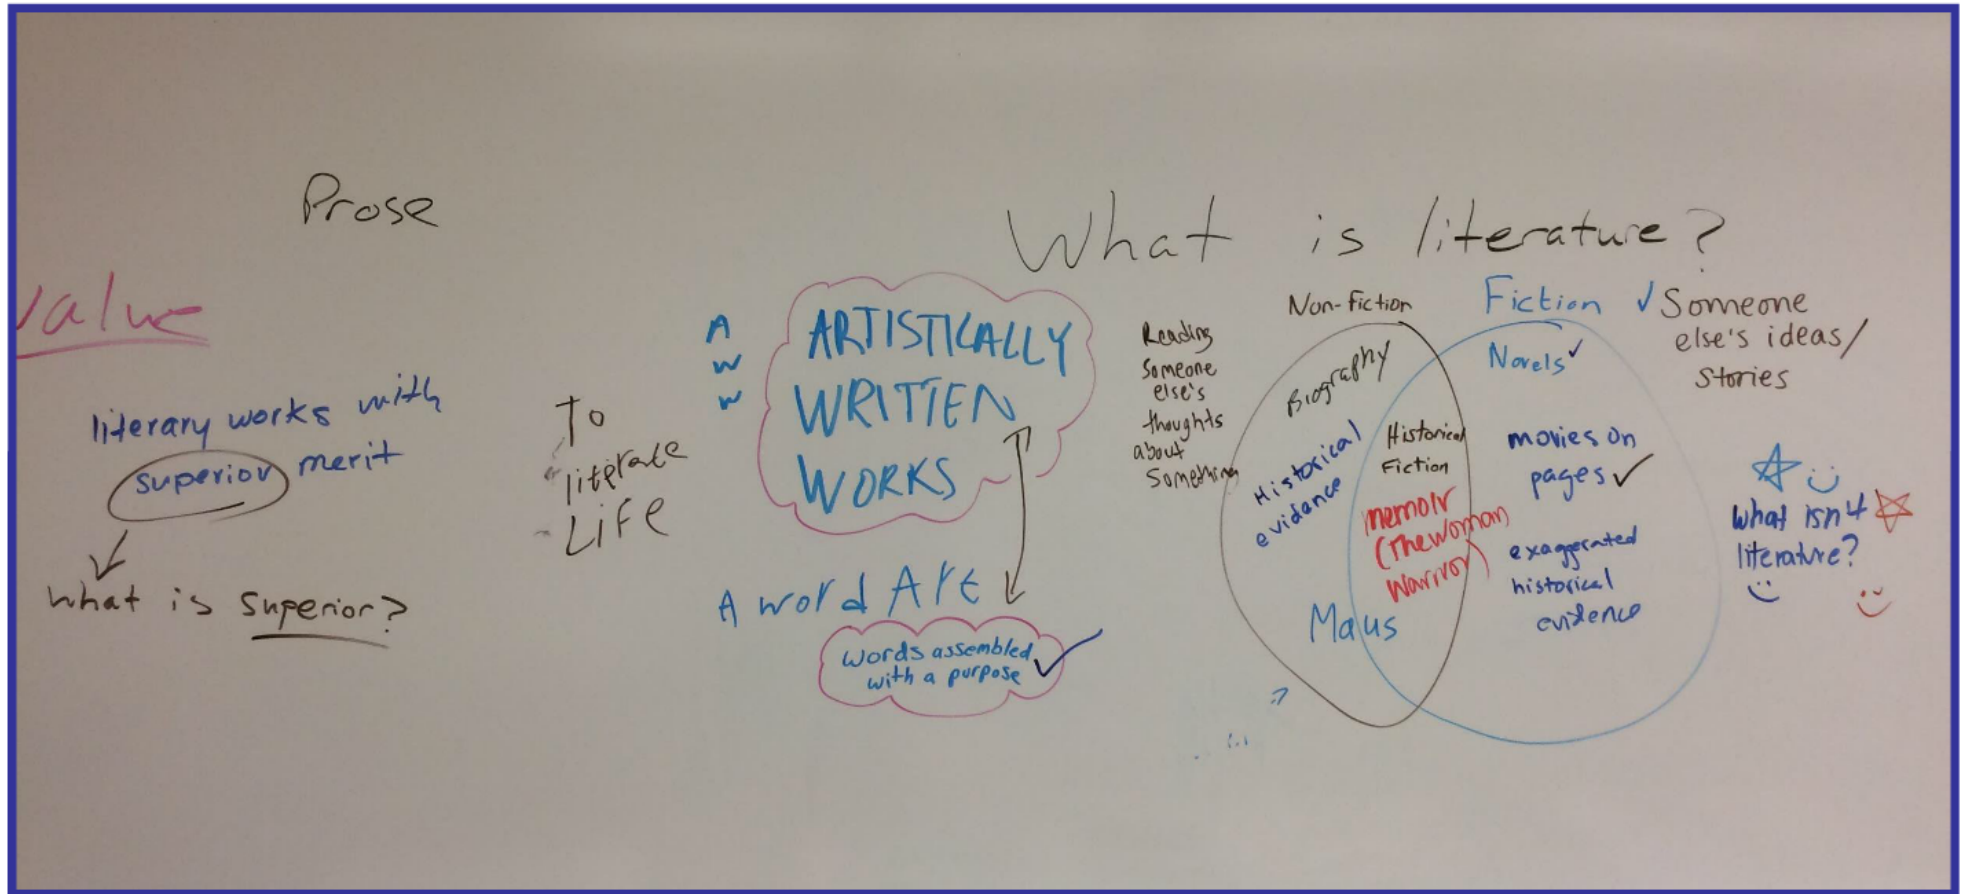 Prose
What is literature?
value
literary works with
superior merit
what is superior?
To
literate
Life
A
W
W
ARTISTICALLY
WRITTEN
WORKS
A word Art
words assembled
with a purpose ✓
Reading
Someone
else's
thoughts
about
Something
Non-fiction
Biography
Historical
evidence
Historical
Fiction
memoir
(The Woman
Warrior)
Maus
Fiction
Novels ✓
movies on
pages ✓
exaggerated
historical
evidence
✓ Someone
else's ideas/
Stories
what isn't
literature?